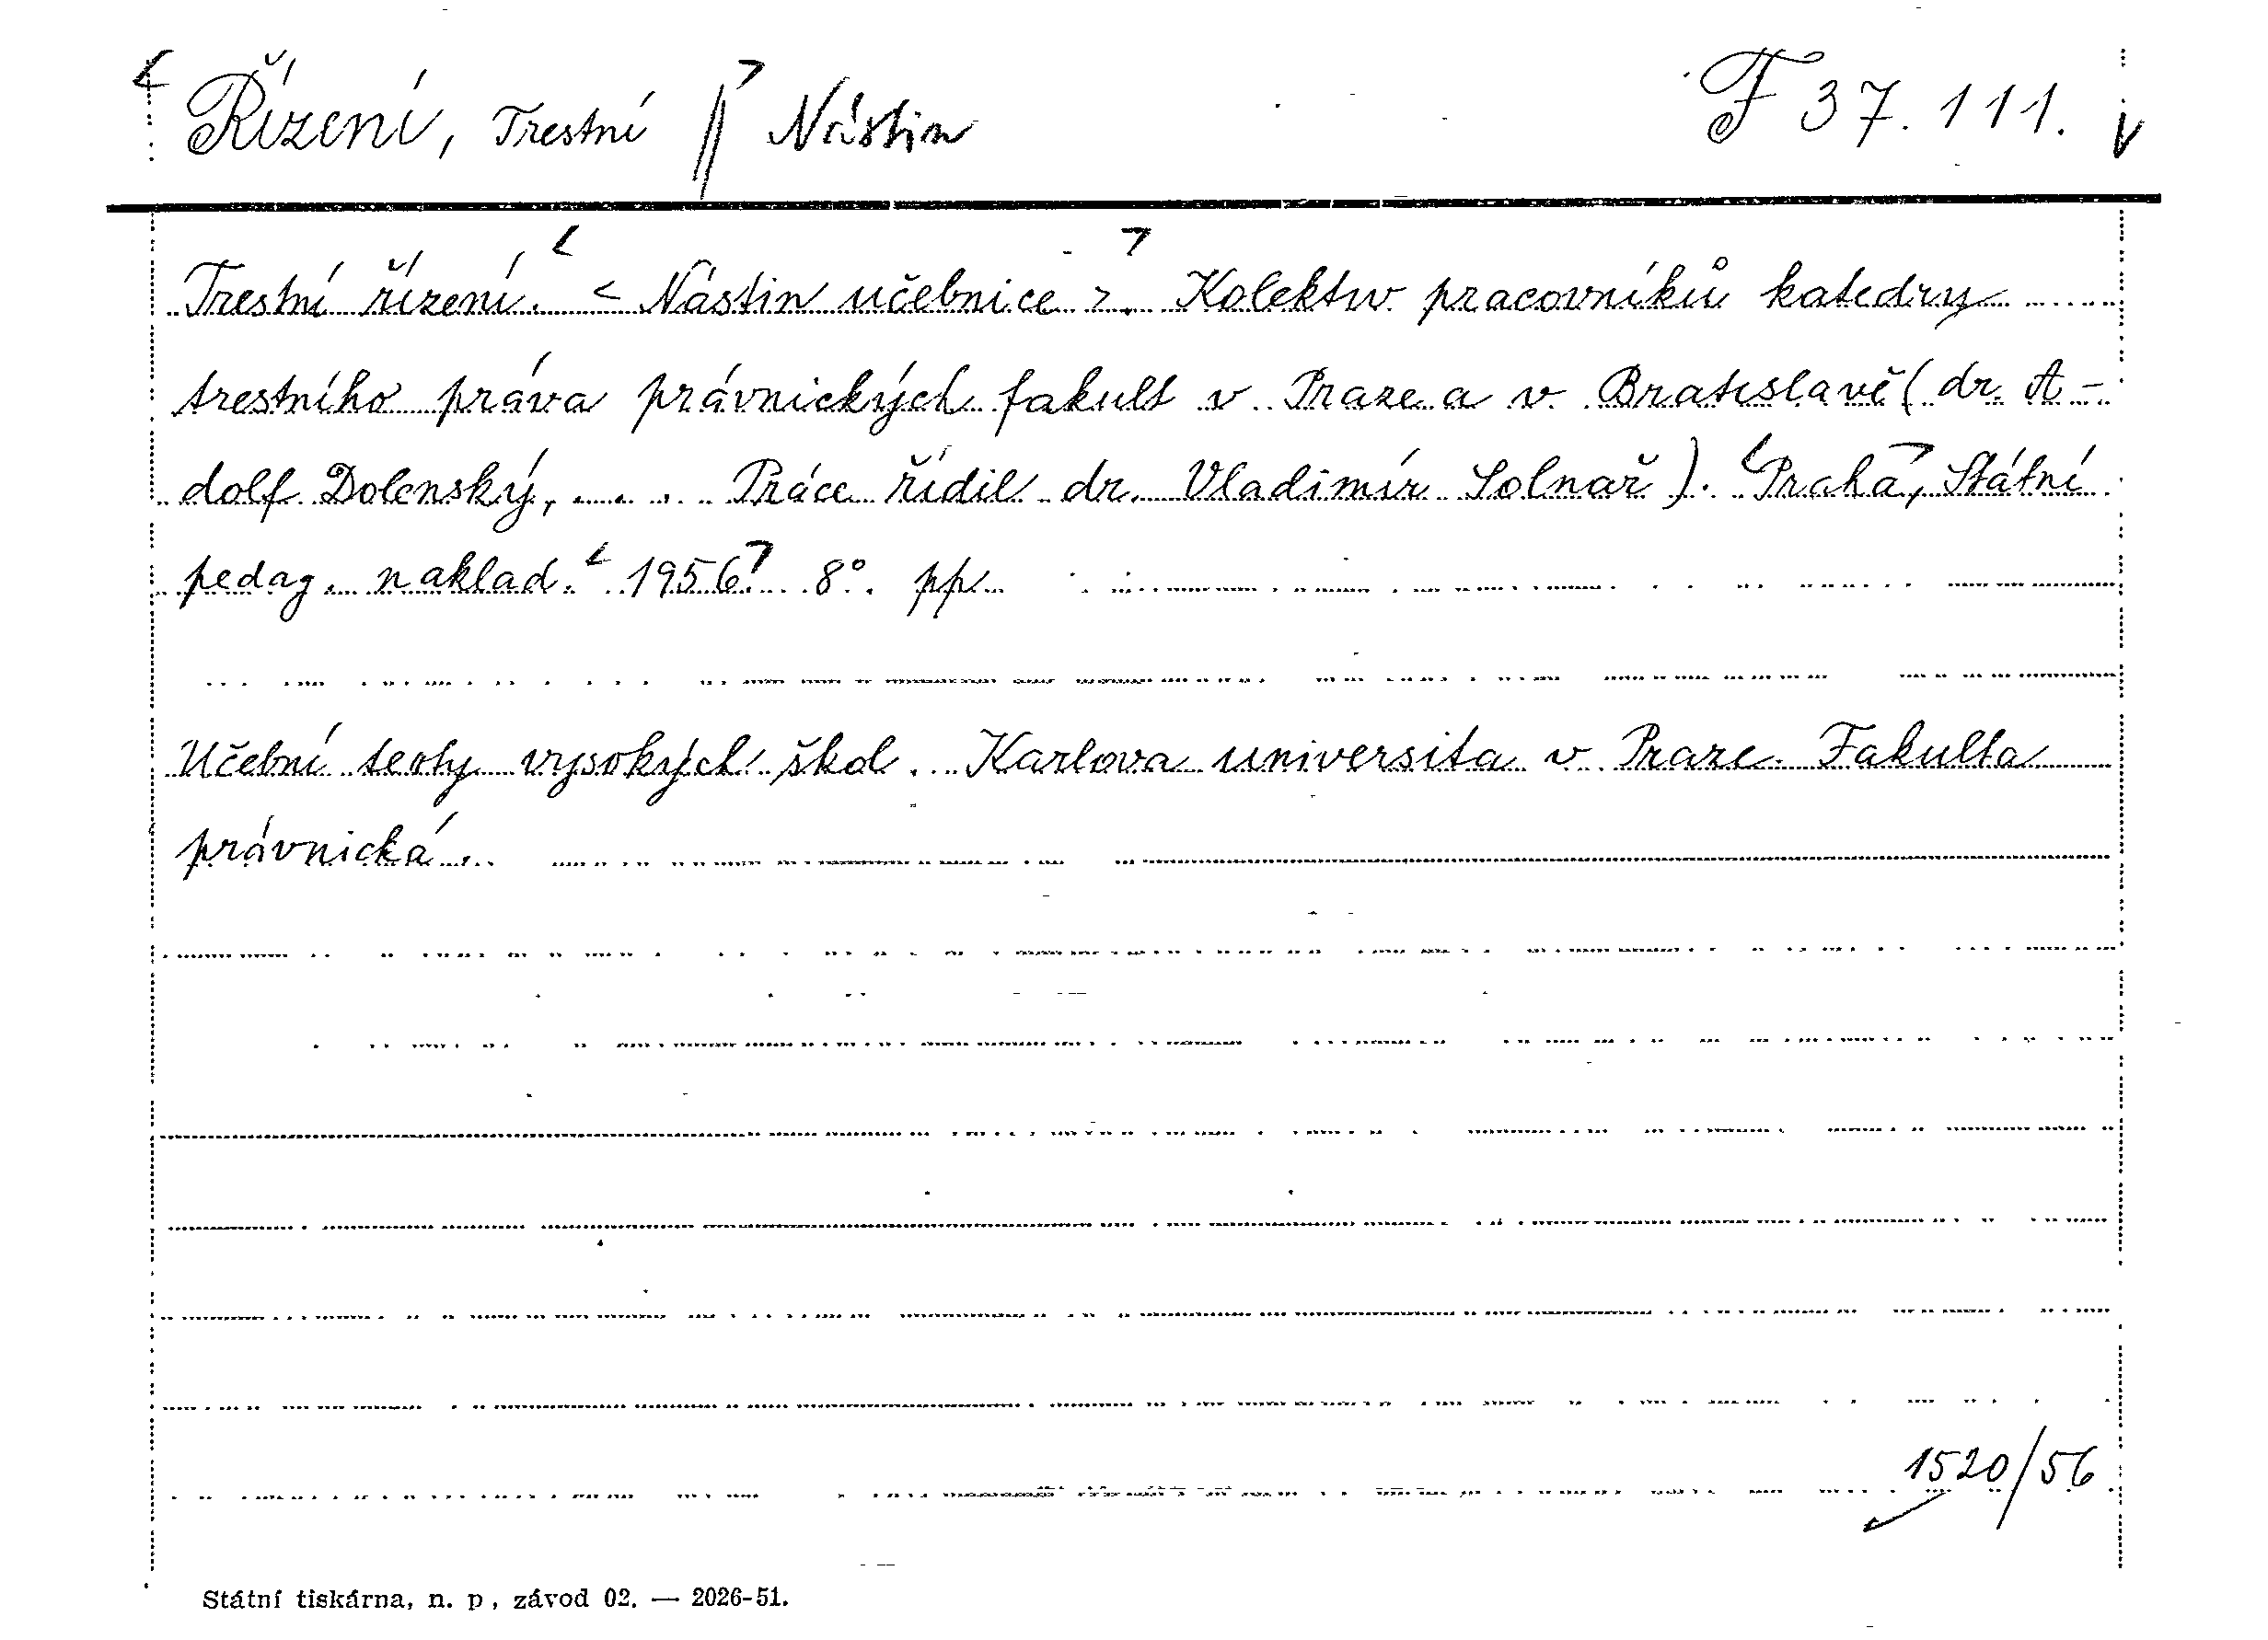 Řízení, Trestní // Nástin F 37.111.
Trestní řízení. < Nástin učebnice >. Kolektiv pracovníků katedry
trestního práva právnických fakult v Praze a v Bratislavě (dr. A-
dolf Dolenský, ... Práce řídil dr. Vladimír Solnař). Praha, Státní
pedag. naklad. 1956. 8°. pp.
Učební texty vysokých škol. Karlova universita v Praze. Fakulta
právnická.
1520/56
Státní tiskárna, n. p., závod 02. — 2026-51.